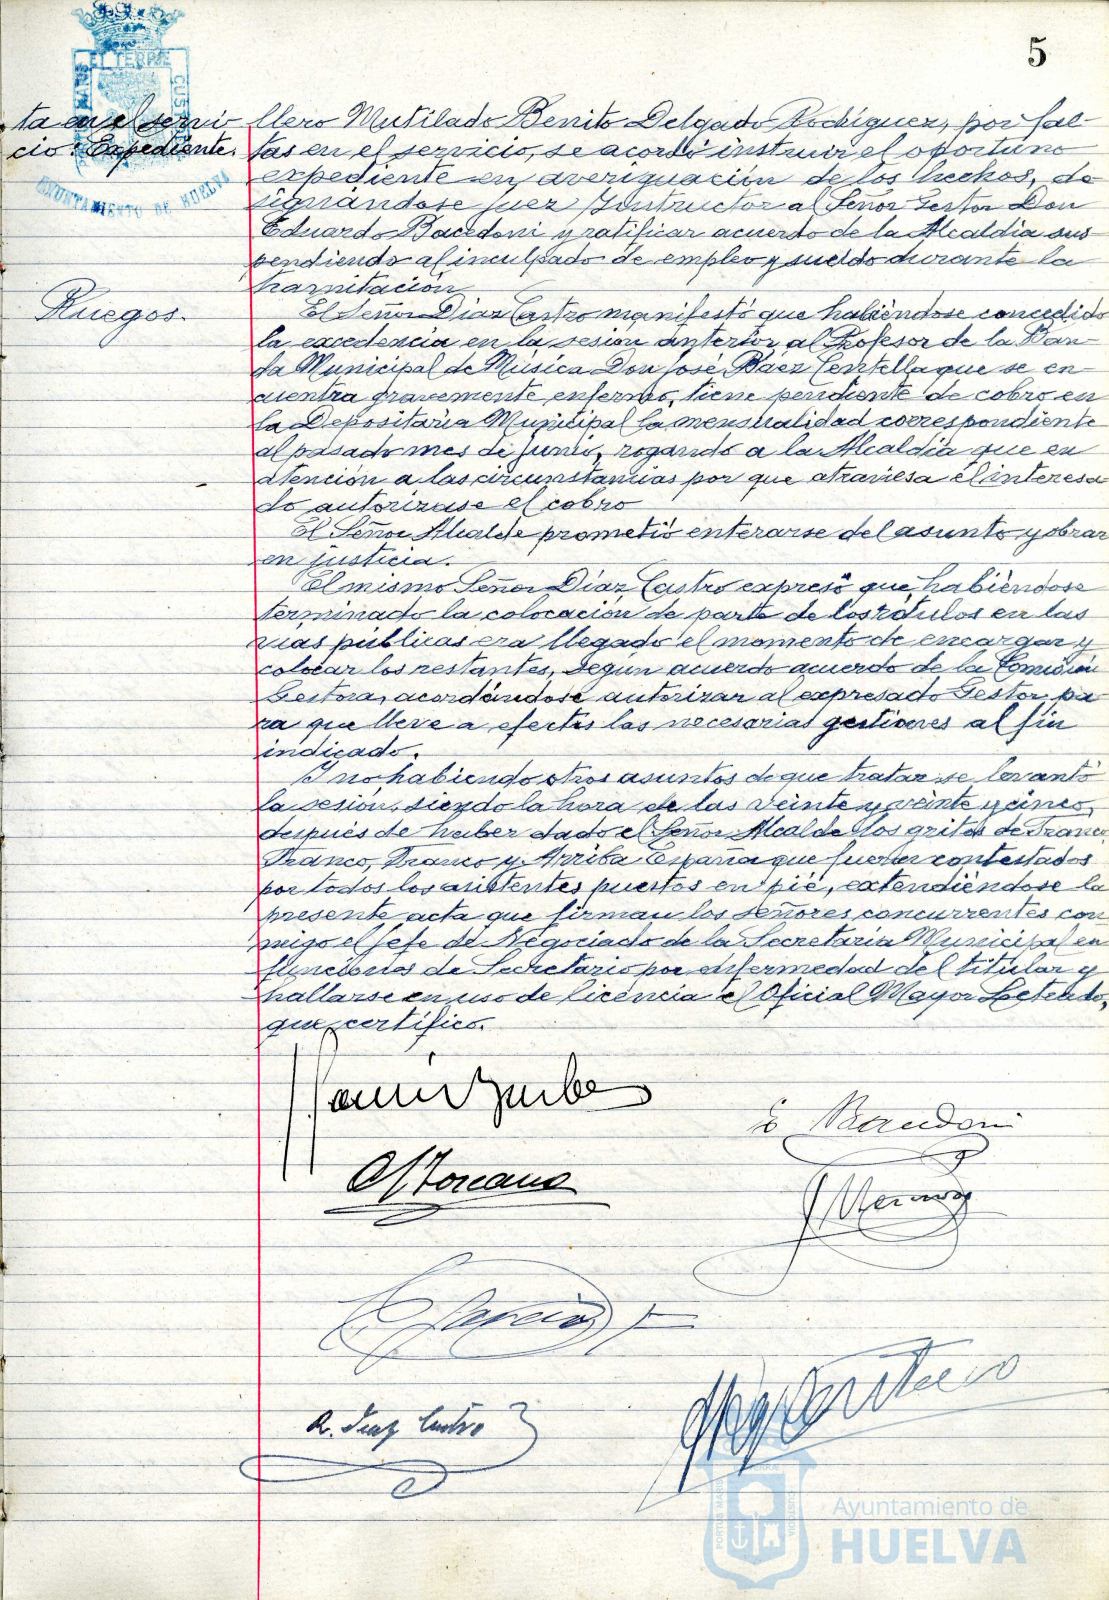 5
ta en el servi-
cio: Expediente.
AYUNTAMIENTO DE HUELVA
llero Mutilado Benito Delgado Rodríguez, por fal-
tas en el servicio, se acordó instruir el oportuno
expediente en averiguación de los hechos, de
signándose Juez Instructor al Señor Gestor Don
Eduardo Bacedoni y ratificar acuerdo de la Alcaldia sus
pendiendo al inculpado de empleo y sueldo durante la
tramitación
Ruegos.
El Señor Diaz Castro manifestó que habiéndose concedido
la excedencia en la sesion anterior al Profesor de la Ban-
da Municipal de Música Don José Báez Centella que se en
cuentra gravemente enfermo, tiene pendiente de cobro en
la Depositaria Municipal la mensualidad correspondiente
al pasado mes de junio, rogando a la Alcaldia que en
atención a las circunstancias por que atraviesa el interesa
do autorizase el cobro
El Señor Alcalde prometió enterarse del asunto y obrar
en justicia.
El mismo Señor Diaz Castro expresó que habiéndose
terminado la colocación de parte de los rótulos en las
vias públicas era llegado el momento de encargar y
colocar los restantes, según acuerdo acuerdo de la Comisión
Gestora, acordándose autorizar al expresado Gestor pa
ra que lleve a efecto las necesarias gestiones al fin
indicado.
Y no habiendo otros asuntos de que tratar se levantó
la sesión, siendo la hora de las veinte y veinte y cinco,
después de haber dado el Señor Alcalde los gritos de Franco
Franco, Franco y Arriba España que fueron contestados
por todos los asistentes puestos en pié, extendiéndose la
presente acta que firman los señores concurrentes con
migo el Jefe de Negociado de la Secretaria Municipal en
funciones de Secretario por enfermedad del titular y
hallarse en uso de licencia el Oficial Mayor Letrado,
que certifico.
R. Diaz Castro
Ayuntamiento de
HUELVA